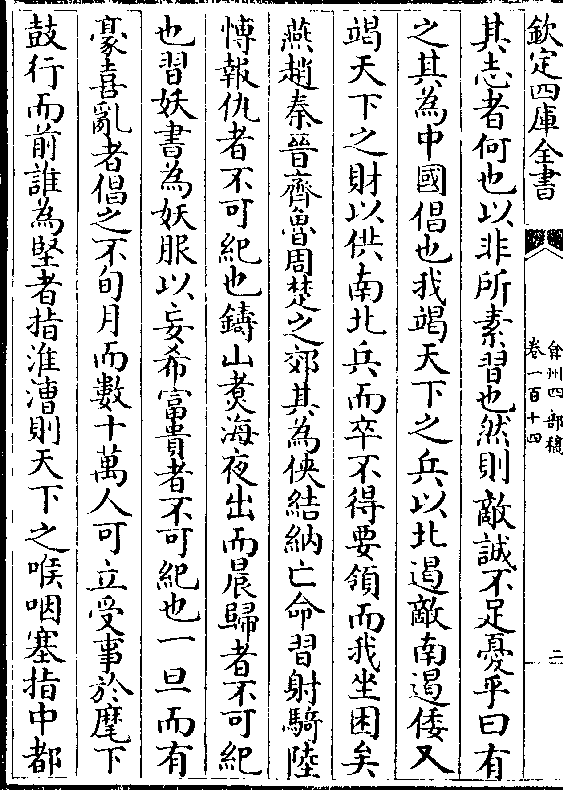 欽定四庫全書
弇州四部稿
卷一百十四
三
其志者何也以非所素習也然則敵誠不足憂乎曰有
之其為中國倡也我竭天下之兵以北遏敵南遏倭又
竭天下之財以供南北兵而卒不得要領而我坐困矣
燕趙秦晉齊魯周楚之郊其為俠結納亡命習射騎陸
愽報仇者不可紀也鑄山煑海夜出而晨歸者不可紀
也習妖書為妖服以妄希富貴者不可紀也一旦而有
豪喜亂者倡之不旬月而數十萬人可立受事於麾下
鼓行而前誰為堅者指淮漕則天下之喉咽塞指中都